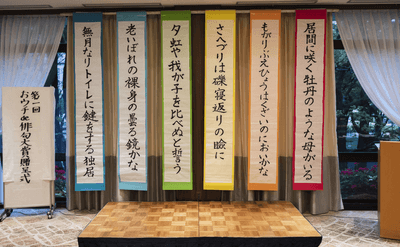 居間に咲く牡丹のような母がいる
もがりぶえひょうはくざいのにおいかな
さへづりは磔寝返りの瞼に
夕虹や我が子を比べぬと誓う
老いぼれの裸身の曇る鏡かな
無月なりトイレに鍵をする独居
第一回
おウチde俳句大賞贈呈式